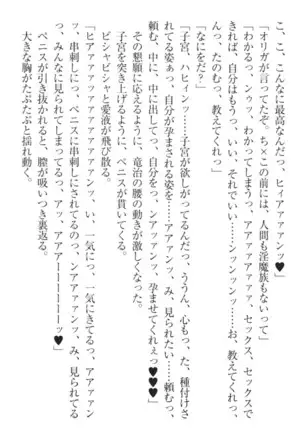 こ、こんなに最高なんだっ、ヒィアアアァァンっ♥」
「オリガが言ってたぞ。ち×この前には、人間も淫魔族もないって」
「わかるっ、ンゥッ、わかってしまうっ、アアアァァァァっ、セックス、セックスで
きれば、自分はもうっ、いい、それでいい……ンッンッンっ……お、教えてくれっ、
竜治、たのむっ、教えてくれっ」
「なにをだ？」
「子宮、ハヒィン……子宮が欲しがってるんだっ、ううん、心もっ、た、種付けさ
れてる姿ぁっ、自分が孕まされる姿を……アアァンっ、み、見られたい……頼むっ、
頼む、中に、中に出してっ、自分をっ、ンアァァンっ、孕ませてくれぇっ♥♥♥」
その懇願に応えるように、竜治の腰の動きが激しくなった。
子宮を突き上げるように、ペニスが貫いてくる。
ビシャビシャと愛液が飛び散る。
「ヒアァァァァァンっ♥♥♥ い、一気にっ、一気にきてるっ、アアァァン
っ、串刺しにっ、ペニスに串刺しにされてるのっ、ンアァァンっ、み、見られてる
っ、みんなに見られてしまってるっ、アッ、アアアーーーーーーっ♥」
ペニスが引き抜かれると、膣が吸いつき裏返る。
大きな胸がたぷたぷと揺れ動く。